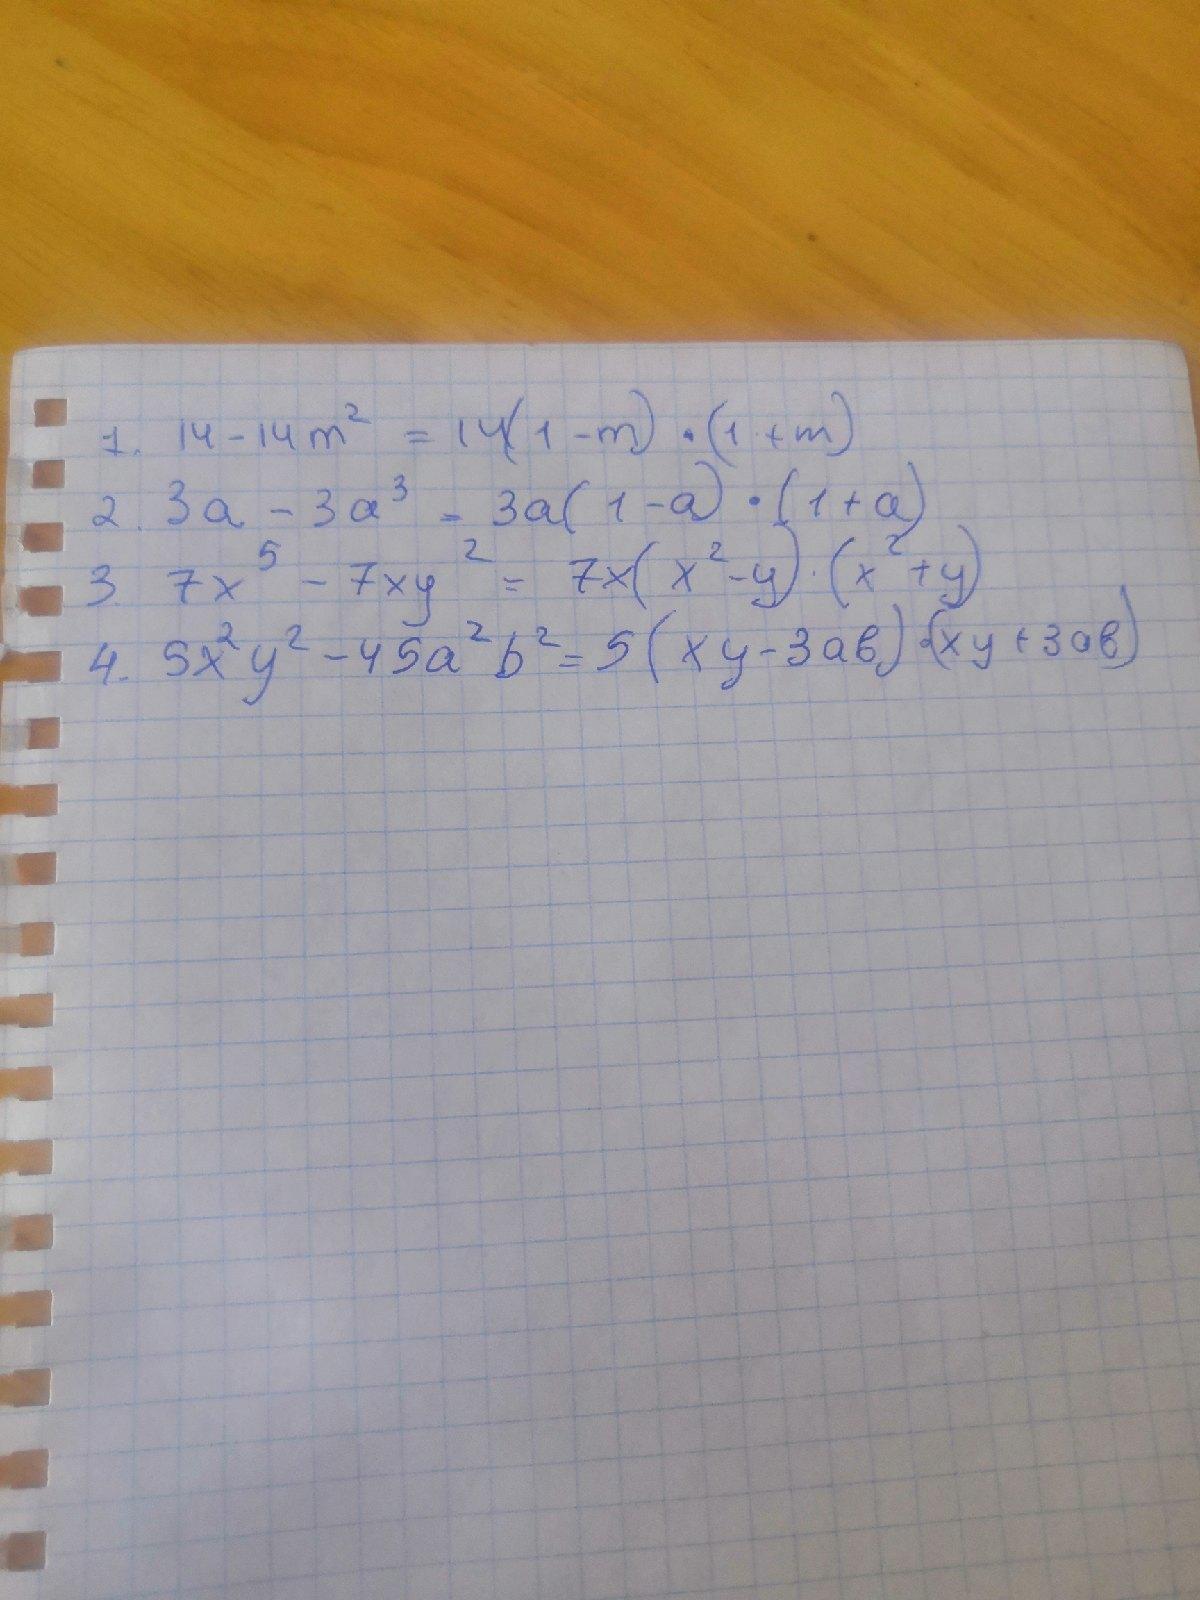 1. 14 - 14m² = 14(1 - m) · (1 + m)
2. 3a - 3a³ - 3a(1 - a) · (1 + a)
3. 7x⁵ - 7xy² = 7x(x² - y) · (x² + y)
4. 5x²y² - 45a²b² = 5(xy - 3ав) · (xy + 3ав)